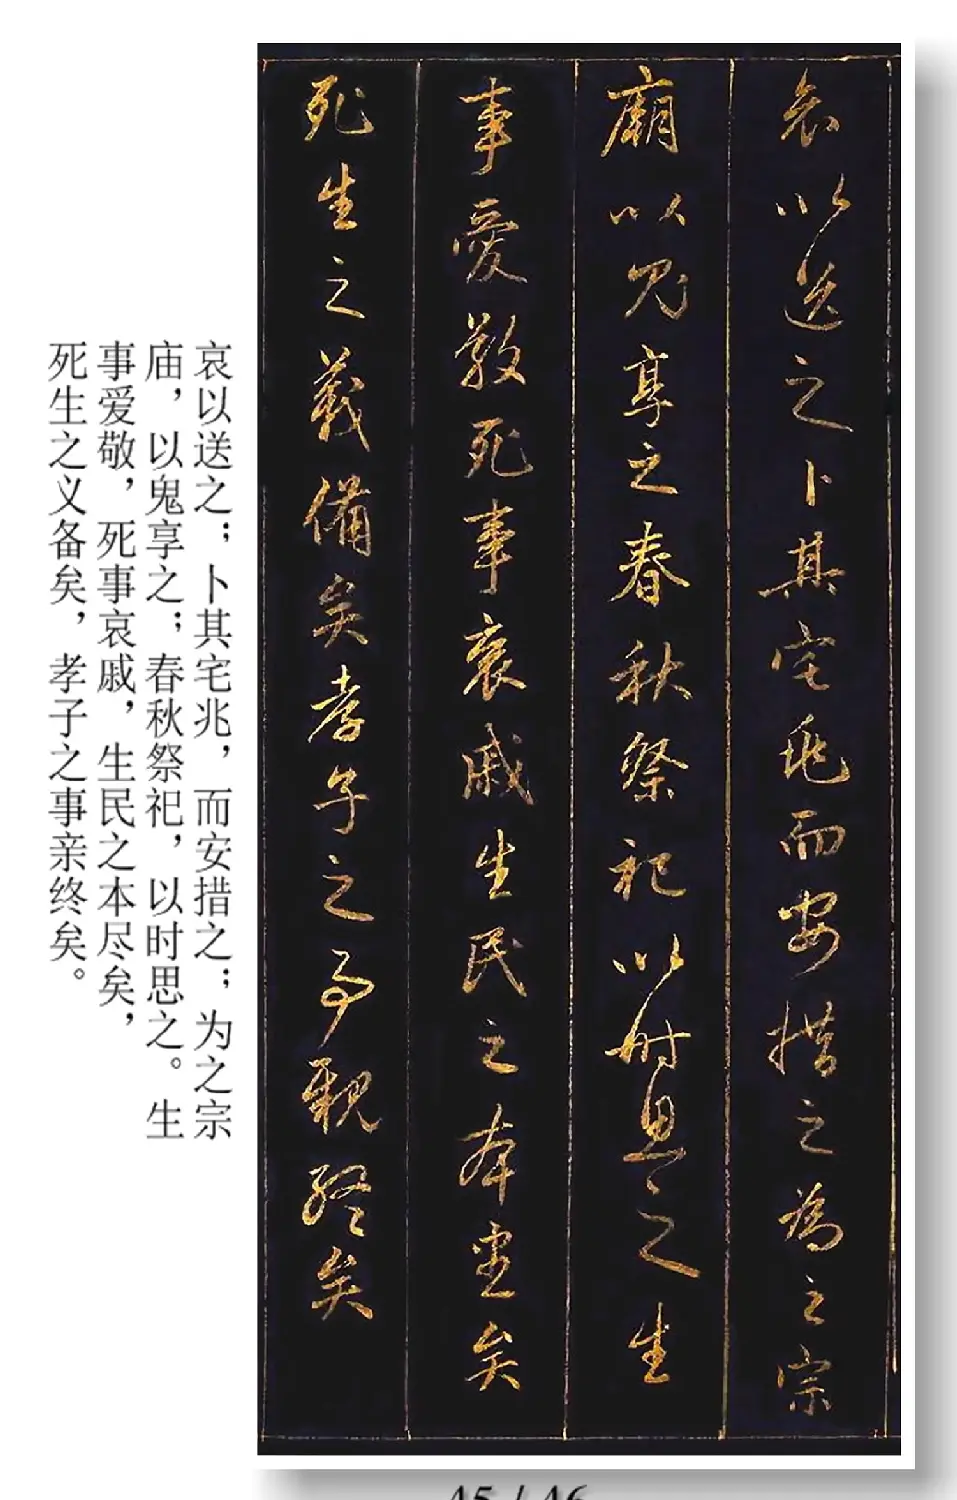 哀以送之卜其宅兆而安措之為之宗
廟以鬼享之春秋祭祀以時思之生
事愛敬死事哀戚生民之本盡矣
死生之義備矣孝子之事親終矣
哀以送之；卜其宅兆，而安措之；为之宗
庙，以鬼享之；春秋祭祀，以时思之。生
事爱敬，死事哀戚，生民之本尽矣，
死生之义备矣，孝子之事亲终矣。
45 / 46